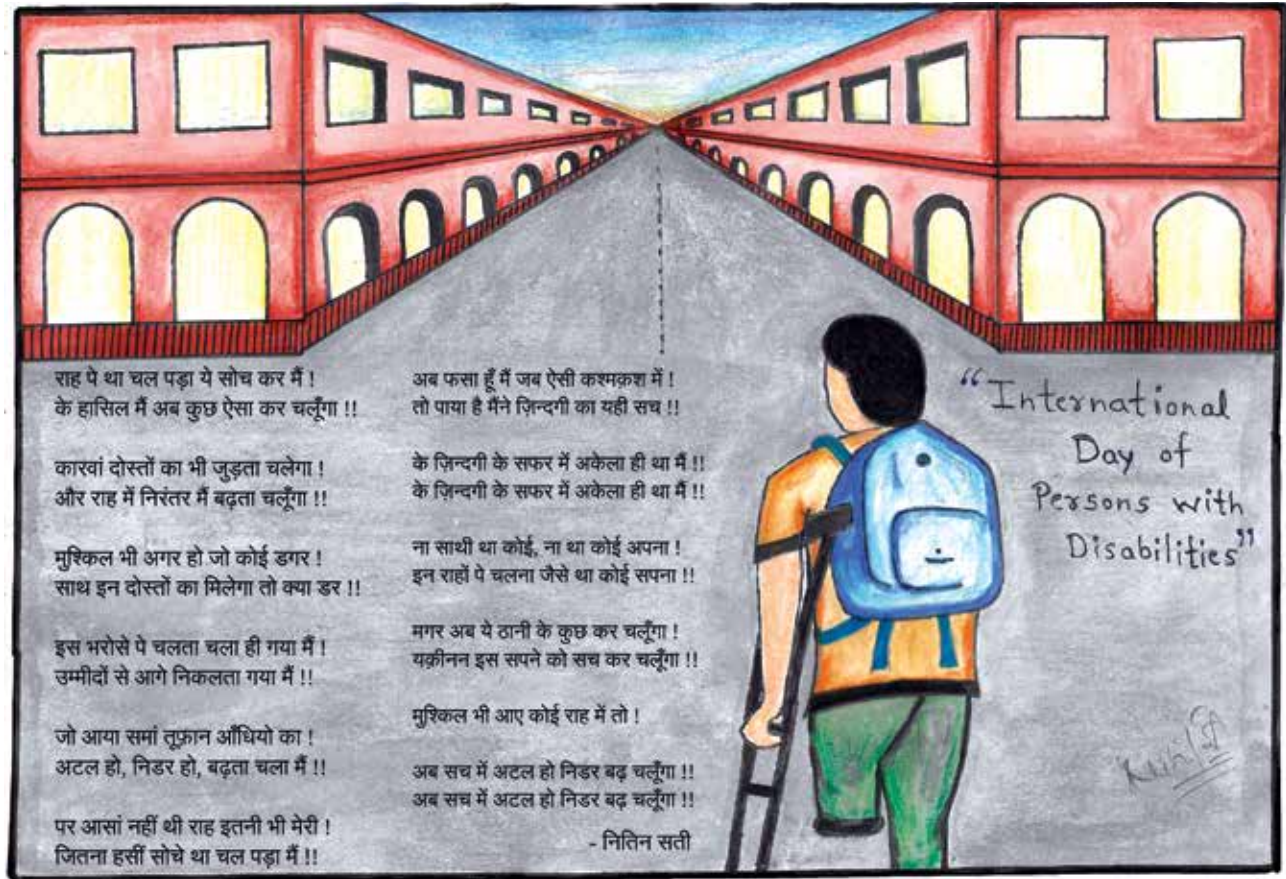 राह पे था चल पड़ा ये सोच कर मैं !
के हासिल मैं अब कुछ ऐसा कर चलूँगा !!
कारवां दोस्तों का भी जुड़ता चलेगा !
और राह में निरंतर मैं बढ़ता चलूँगा !!
मुश्किल भी अगर हो जो कोई डगर !
साथ इन दोस्तों का मिलेगा तो क्या डर !!
इस भरोसे पे चलता चला ही गया मैं !
उम्मीदों से आगे निकलता गया मैं !!
जो आया समां तूफ़ान आँधियो का !
अटल हो, निडर हो, बढ़ता चला मैं !!
पर आसां नहीं थी राह इतनी भी मेरी !
जितना हसीं सोचे था चल पड़ा मैं !!
अब फसा हूँ मैं जब ऐसी कश्मक़श में !
तो पाया है मैंने ज़िन्दगी का यही सच !!
के ज़िन्दगी के सफर में अकेला ही था मैं !!
के ज़िन्दगी के सफर में अकेला ही था मैं !!
ना साथी था कोई, ना था कोई अपना !
इन राहों पे चलना जैसे था कोई सपना !!
मगर अब ये ठानी के कुछ कर चलूँगा !
यक़ीनन इस सपने को सच कर चलूँगा !!
मुश्किल भी आए कोई राह में तो !
अब सच में अटल हो निडर बढ़ चलूँगा !!
अब सच में अटल हो निडर बढ़ चलूँगा !!
- नितिन सती
“International
Day of
Persons with
Disabilities”